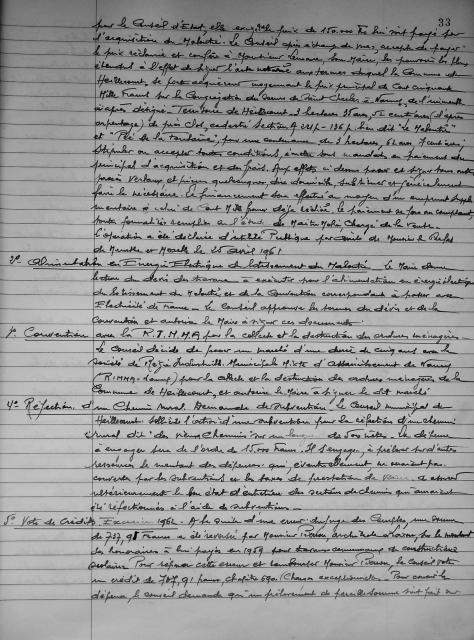 33
par le Conseil d'état, elle exige le prix de 150.000 Frs lui soit payé pour
l'acquisition du Malouté. Le Conseil après échange de vues, accepte de payer
le prix réclamé et confère à Monsieur le Maire, les pouvoirs les plus
étendus à l'effet de signer l'acte notarié aux termes duquel la Commune de
Heillecourt, se porte acquéreur moyennant le prix principal de Cent cinquante
Mille Francs sur la Congrégation des Soeurs de Saint Charles à Nancy, de l'immeuble
ci-après désigné : Territoire de Heillecourt, hectares ares, centiares (d'après
arpentage) de pré clos, cadastré Section A lieu dit "le Malouté"
et pour une contenance de 3 hectares, 61 ares, centiares.
Stipuler ou accepter toutes conditions, émettre tout mandat, en paiement du
principal d'acquisition et des frais. Aux effets ci-dessus passer et signer tous actes
procès verbaux et pièces quelconques, élire domicile, substituer et généralement
faire le nécessaire. Le financement sera effectué au moyen d'un emprunt
de Cent Mille francs déjà réalisé. Le paiement se fera au comptant,
toutes formalités remplies à l'étude de Maître Chargé de la vente.
L'opération a été déclarée d'utilité Publique par arrêté de Monsieur le Préfet
de Meurthe et Moselle le 25 avril 1961
2° Alimentation en Energie Electrique du lotissement du Malouté. Le Maire donne
lecture du devis des travaux à exécuter pour l'alimentation en énergie électrique
du lotissement du Malouté, et de la Convention correspondante à passer avec
Electricité de France. Le Conseil approuve les termes du devis et de la
Convention et autorise le Maire à signer ces documents.
Convention avec la R.I.M.M.A. pour la collecte et la destruction des ordures ménagères.
Le Conseil décide de passer un marché d'une durée de cinq ans avec la
Société de Régie Industrielle Municipale Mixte d'Assainissement de Nancy
(RIMMA-Nancy) pour la collecte et la destruction des ordures ménagères de la
Commune de Heillecourt, et autorise le Maire à signer le dit marché
4° Réfection d'un Chemin rural. Demande de subvention. Le Conseil municipal de
Heillecourt sollicite l'octroi d'une subvention pour la réfection d'un chemin
rural dit "des vieux Chemins" sur une longueur de 500 mètres. La dépense
à envisager sera de l'ordre de 15.000 francs. Il s'engage, à prélever sur d'autres
ressources le montant des dépenses qui, éventuellement ne seraient pas
couvertes par les subventions et les taxes de prestation de voirie et assurer
ultérieurement le bon état d'entretien des sections de chemin qui auraient
été réfectionnées à l'aide de subventions.
5° Vote de Crédits. Exercice 1962. A la suite d'une erreur une somme
de 737,91 Francs a été reversée par Monsieur architecte à Nancy, sur le montant
des honoraires à lui payés en 1959 pour travaux communaux de construction
scolaire. Pour réparer cette erreur et rembourser Monsieur le Conseil vote
un crédit de 737,91 francs, chapitre 690 (Charges exceptionnelles). Pour couvrir la
dépense, le conseil demande qu'un prélèvement de pareille somme soit fait sur